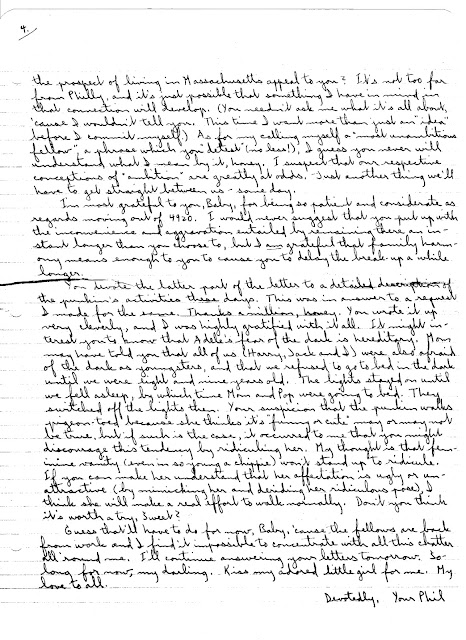 4.
the prospect of living in Massachusetts appeal to you? It's not too far
from Philly, and it's just possible that something I have in mind in
that connection will develop. (You needn't ask me what it's all about,
'cause I wouldn't tell you. This time I want more than just an "idea"
before I commit myself.) As for my calling myself a "most unambitious
fellow", a phrase which you "detest" (no less!), I guess you never will
understand what I mean by it, honey. I suspect that our respective
conceptions of "ambition" are greatly at odds. Just another thing we'll
have to get straight between us - some day.
I'm most grateful to you, Baby, for being so patient and considerate as
regards moving out of 4920. I would never suggest that you put up with
the inconvenience and aggravation entailed by remaining there an in-
stant longer than you choose to, but I am grateful that family harm-
ony means enough to you to cause you to delay the break-up a while
longer.
You devote the latter part of the letter to a detailed description of
the punkin's activities these days. This was in answer to a request
I made for the same. Thanks a million, honey. You wrote it up
very cleverly, and I was highly gratified with it all. It might in-
terest you to know that Adele's fear of the dark is hereditary. Mom
may have told you that all of us (Harry, Jack and I) were also afraid
of the dark as youngsters, and that we refused to go to bed in the dark
until we were eight and nine years old. The lights stayed on until
we fell asleep, by which time Mom and Pop were going to bed. They
switched off the lights then. Your suspicion that the punkin walks
pigeon-toed because she thinks it's "funny or cute" may or may not
be true, but if such is the case, it occurred to me that you might
discourage this tendency by ridiculing her. My thought is that fem-
inine vanity (even in so young a chippie) won't stand up to ridicule.
If you can make her understand that her affectation is ugly or un-
attractive (by mimicking her and deriding her ridiculous pose), I
think she will make a real effort to walk normally. Don't you think
it's worth a try, Sweet?
Guess that'll have to do for now, Baby, 'cause the fellows are back
from work and I find it impossible to concentrate with all this chatter
all 'round me. I'll continue answering your letters tomorrow. So-
long for now, my darling. Kiss my adored little girl for me. My
love to all.
Devotedly, Your Phil